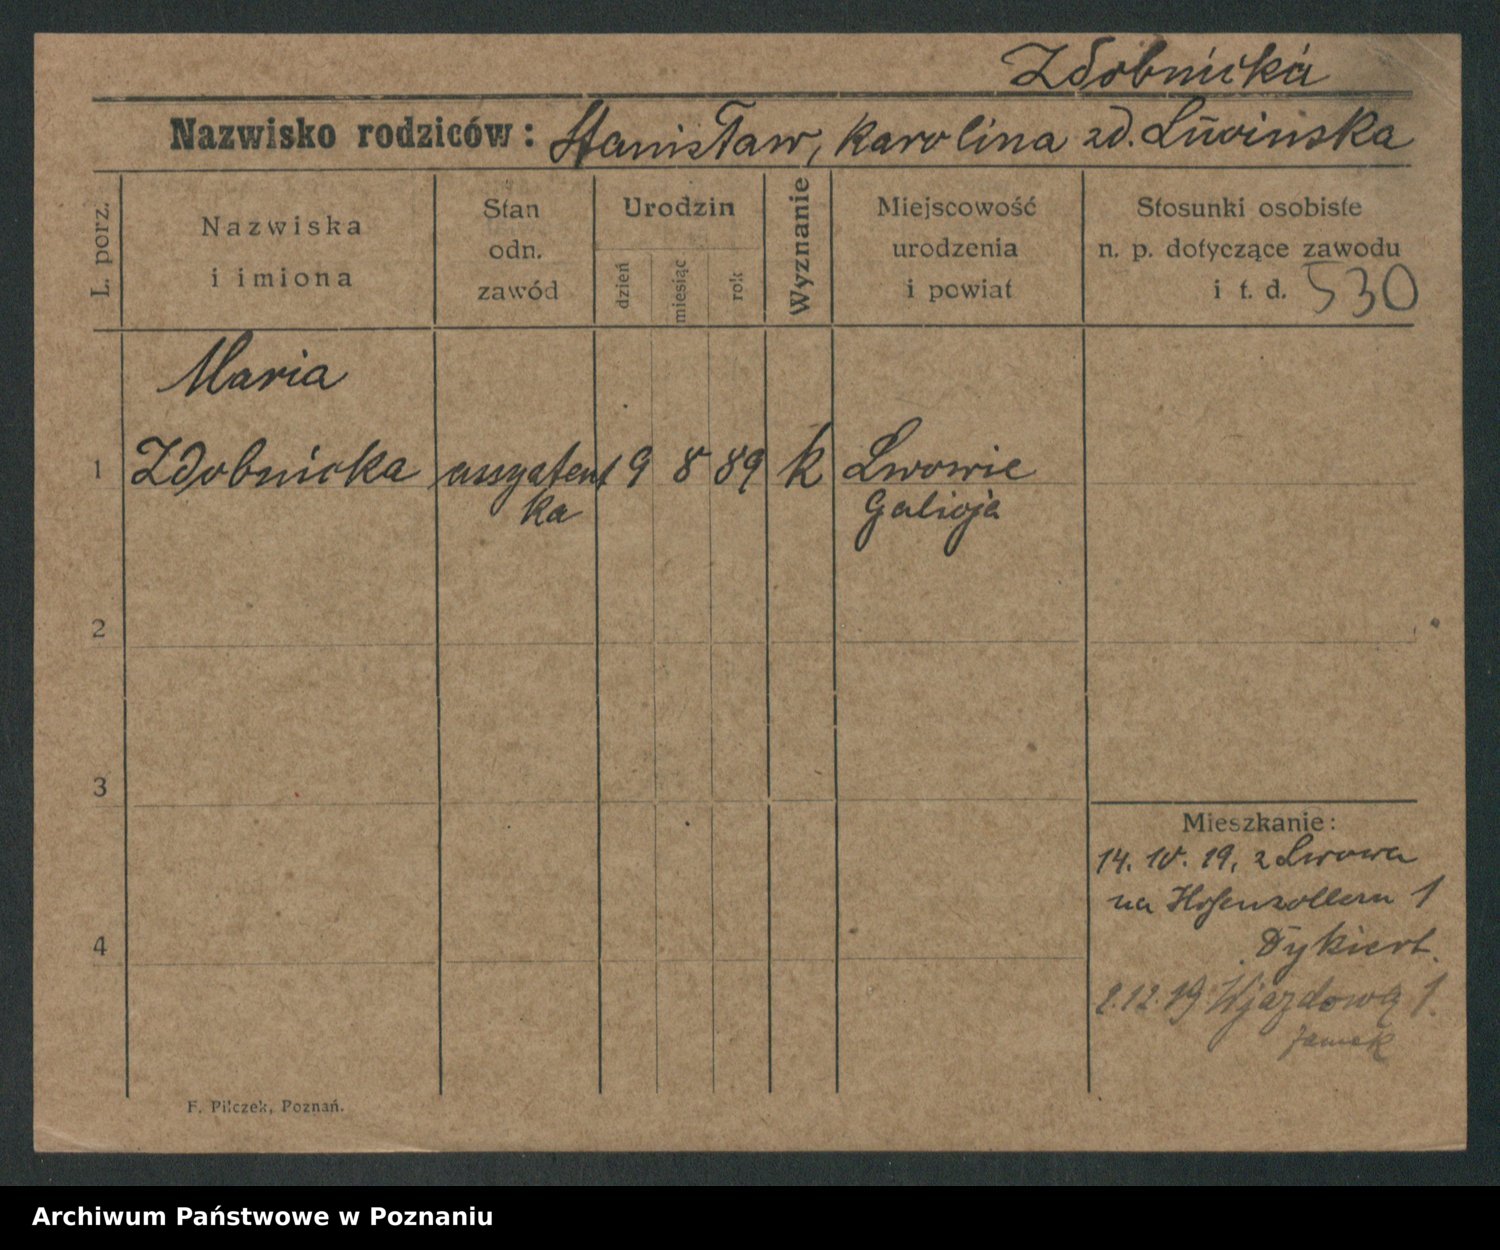 Zdobnicka
Nazwisko rodziców: Stanisław, Karolina zd. Luwinska
L. porz.
Nazwiska
i imiona
Stan
odn.
zawód
Urodzin
dzień
miesiąc
rok
Wyznanie
Miejscowość
urodzenia
i powiat
Stosunki osobiste
n. p. dotyczące zawodu
i t. d. 530
Maria
1 Zdobnicka assystent 9 8 89 k Lwowie
ka Galicja
2
3
4
Mieszkanie:
14. 10. 19, z Lwowa
na Hohenzollern 1
Dykiert.
2.12.19 Wjazdowa 1.
Zamek
F. Pilczek, Poznań.
Archiwum Państwowe w Poznaniu